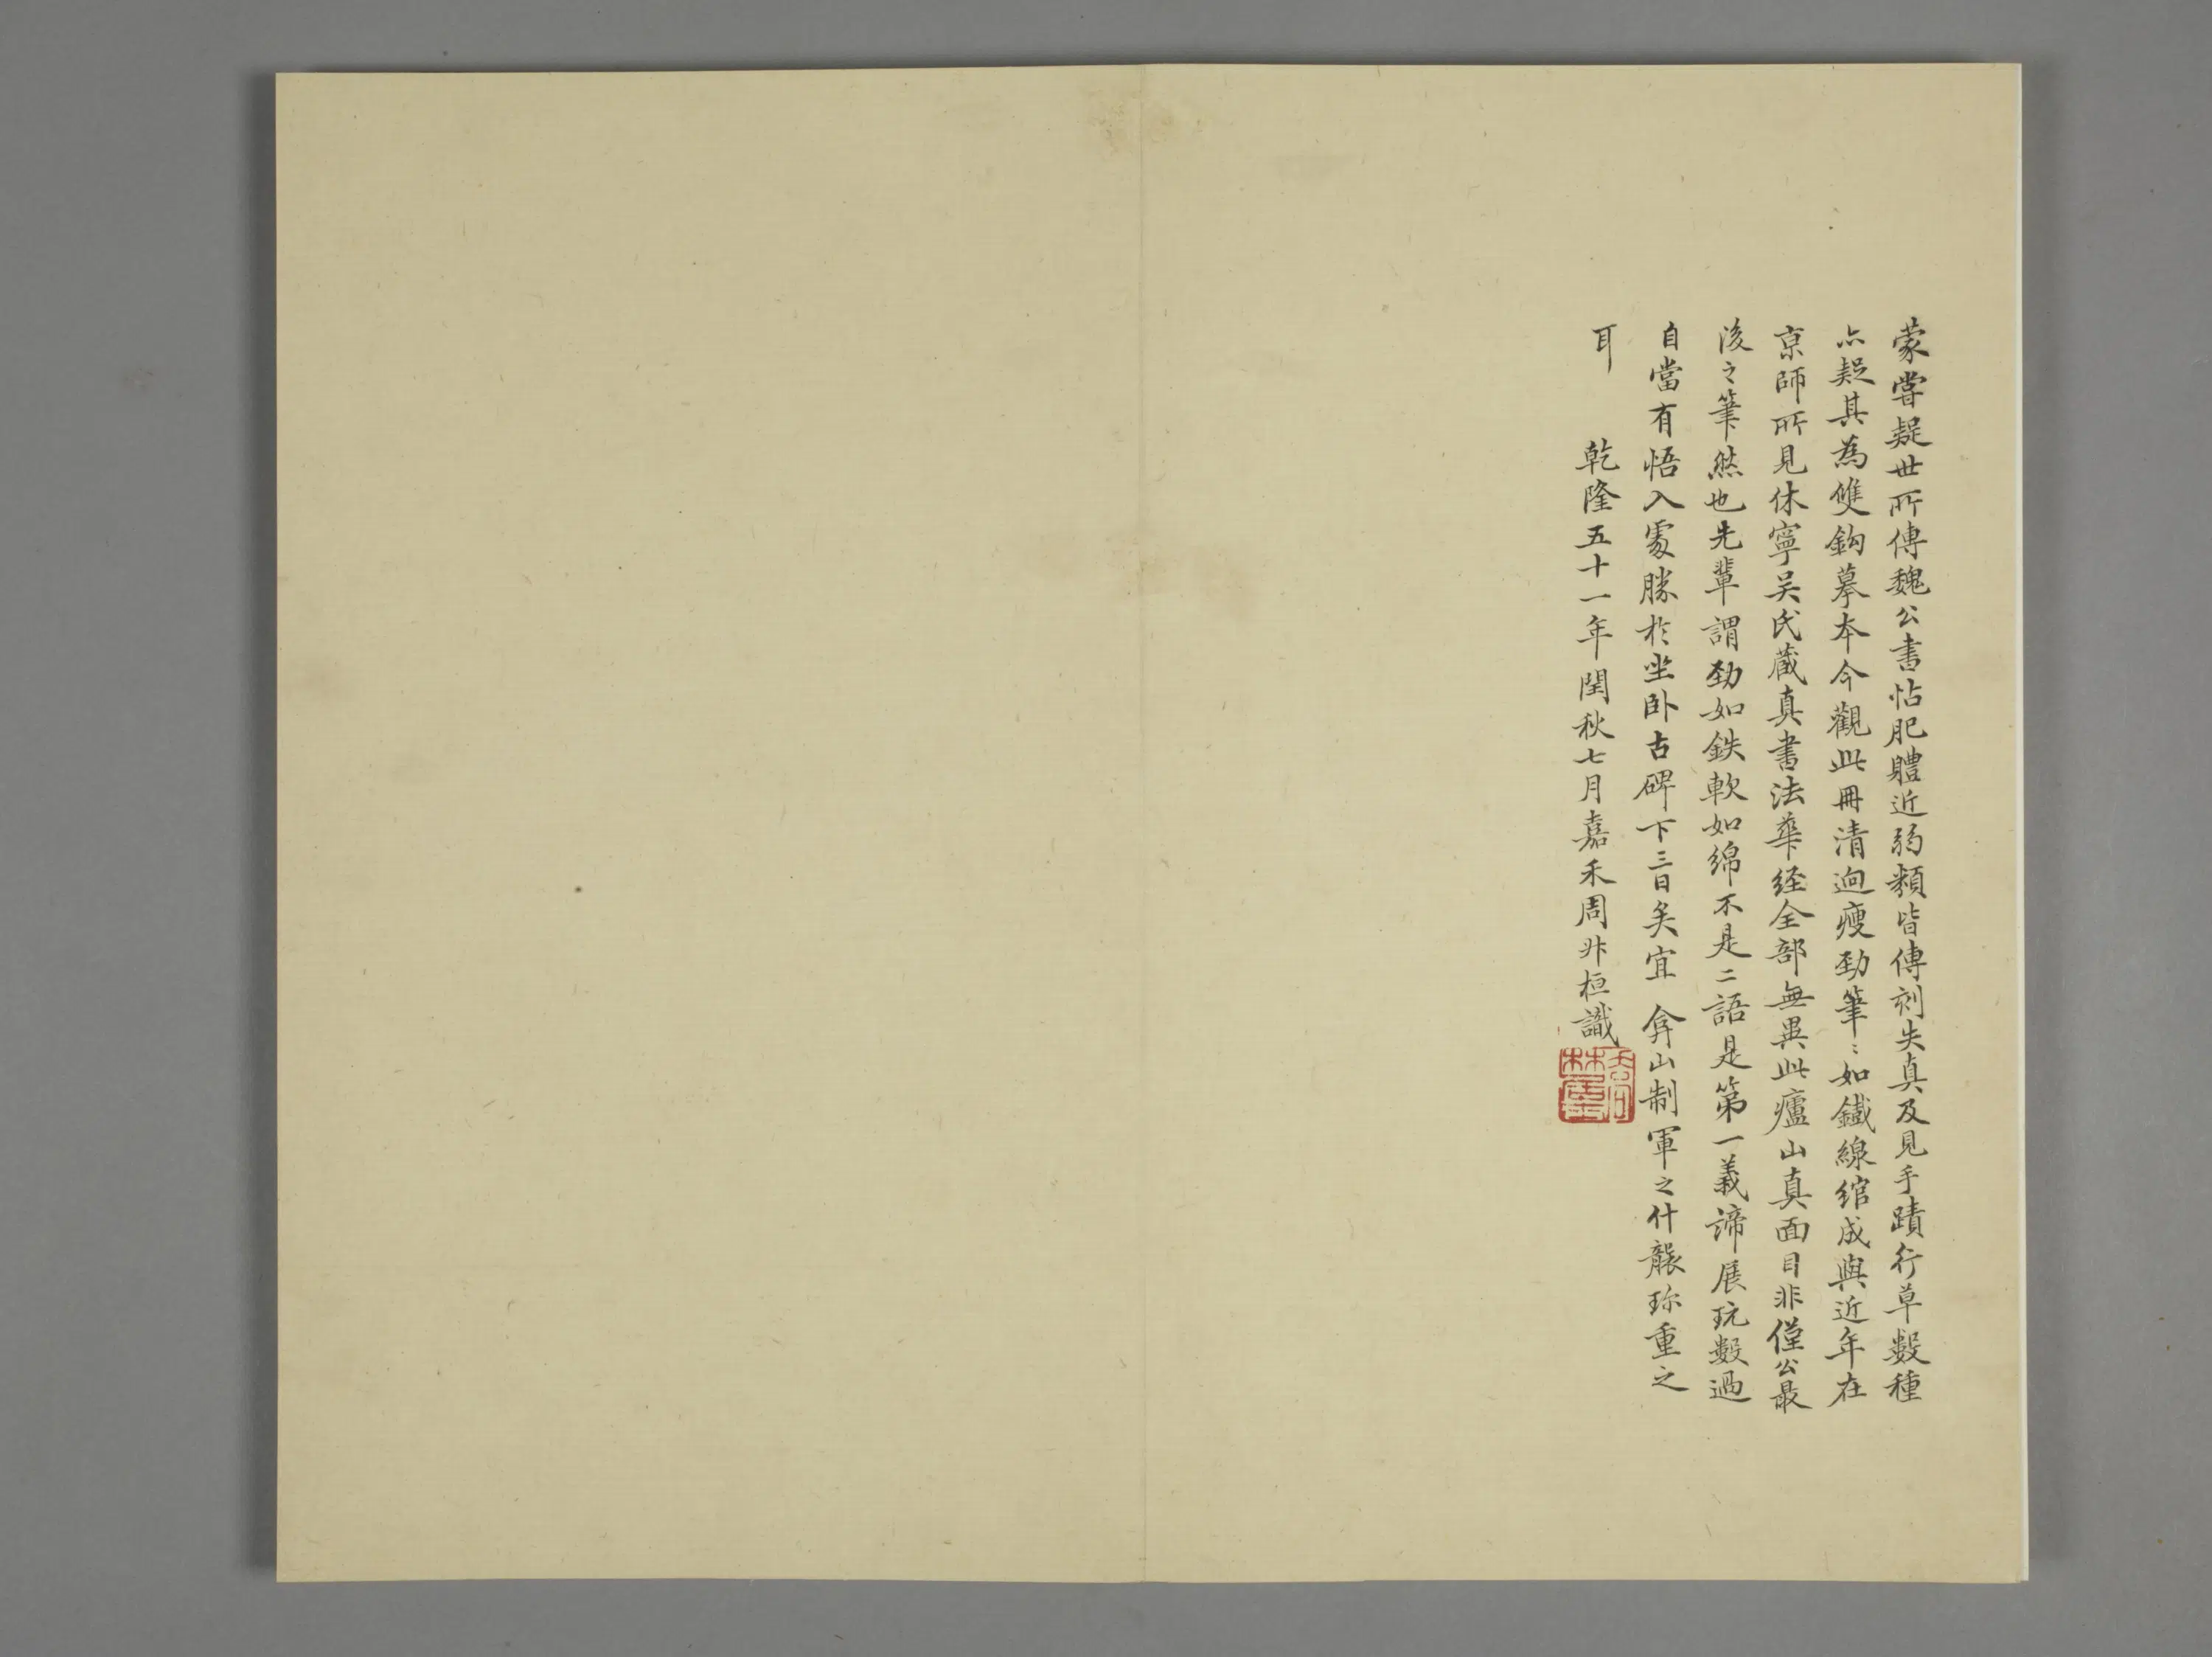 蒙嘗疑世所傳魏公書帖肥體近弱類皆傳刻失真及見手蹟行草數種
亦疑其為雙鈎摹本今觀此冊清迥瘦勁筆〻如鐵線綰成與近年在
京師所見休寧吴氏藏真書法華経全部無異此廬山真面目非僅公最
後之筆然也先輩謂勁如鉄軟如綿不是二語是第一義諦展玩數過
自當有悟入處勝於坐卧古碑下三日矣宜 弇山制軍之什襲珎重之
耳 乾隆五十一年閏秋七月嘉禾周升桓識